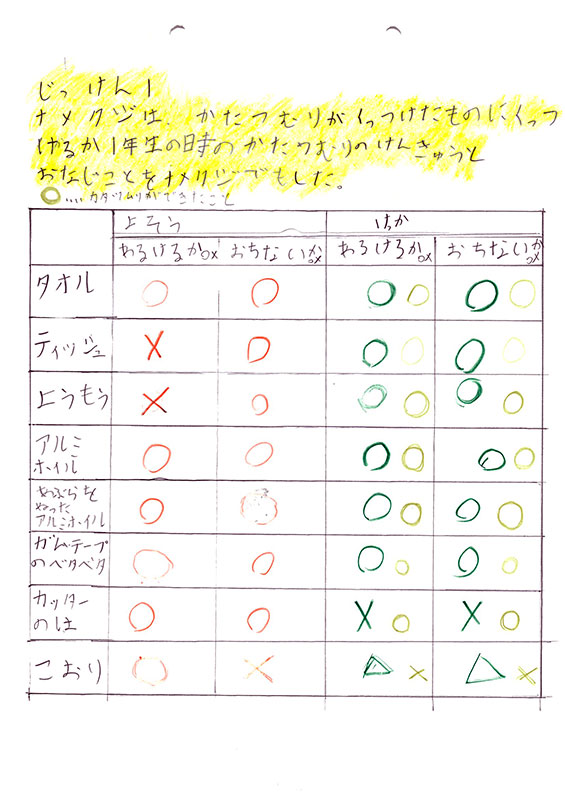 じっけん1
ナメクジは、かたつむりがくっつけたものにくっつ
けるか1年生の時のかたつむりのけんきゅうと
おなじことをナメクジでもした。
○....カタツムリができたこと
よそう けっか
あるけるか○× おちないか○× あるけるか○× おちないか○×
タオル ○ ○ ○ ○ ○ ○
ティッシュ × ○ ○ ○ ○ ○
ようもう × ○ ○ ○ ○ ○
アルミ
ホイル ○ ○ ○ ○ ○ ○
あぶらを
ぬった
アルミホイル ○ ○ ○ ○ ○ ○
ガムテープ
のベタベタ ○ ○ ○ ○ ○ ○
カッター
のは ○ ○ × ○ × ○
こおり ○ × △ × △ ×